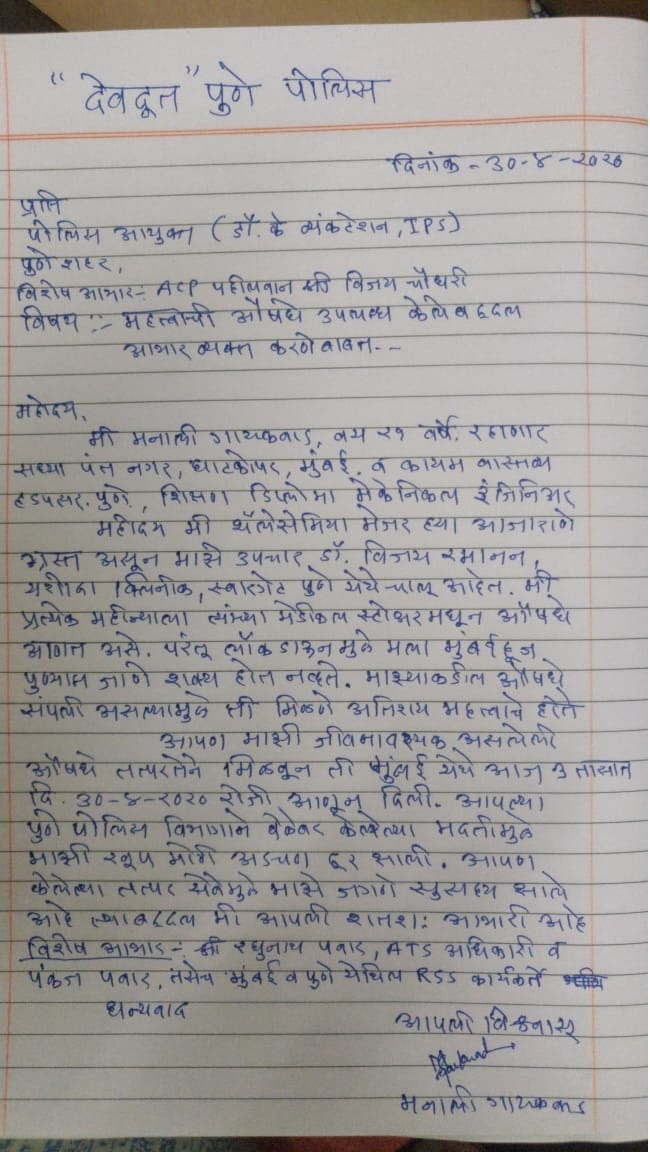 "देवदूत" पुणे पोलिस
दिनांक - ३०-४-२०२०
प्रति
पोलिस आयुक्त (डॉ. के व्यंकटेशन, IPS)
पुणे शहर,
विशेष आभार:- ACP पहीलवान श्री विजय चौधरी
विषय :- महत्वाची औषधे उपलब्ध केलेबद्दल
आभार व्यक्त करणेबाबत--
महोदय,
मी मनाली गायकवाड, वय २१ वर्षे. रहाणार
सध्या पंत नगर, घाटकोपर, मुंबई. व कायम वास्तव्य
हडपसर. पुणे, शिक्षण डिप्लोमा मेकॅनिकल इंजिनिअर
महोदय मी थॅलेसेमिया मेजर ह्या आजाराने
ग्रस्त असून माझे उपचार डॉ. विजय रमानन,
यशोदा क्लिनीक, स्वारगेट पुणे येथे चालू आहेत. मी
प्रत्येक महीन्याला त्यांच्या मेडीकल स्टोअरमधून औषधे
आणत असे. परंतू लॉकडाऊनमुळे मला मुंबईहून
पुण्यास जाणे शक्य होत नव्हते. माझ्याकडील औषधे
संपली असल्यामुळे ती मिळणे अतिशय महत्वाचे होते
आपण माझी जीवनावश्यक असलेली
औषधे तत्परतेने मिळवून ती मुंबई येथे आज ३ तासात
दि. ३०-४-२०२० रोजी आणून दिली. आपल्या
पुणे पोलिस विभागाने वेळेवर केलेल्या मदतीमुळे
माझी खूप मोठी अडचण दूर झाली. आपण
केलेल्या तत्पर सेवेमुळे माझे जगणे सुसह्य झाले
आहे त्याबद्दल मी आपली शतश: आभारी आहे
विशेष आभार :- श्री रघुनाथ पवार, ATS अधिकारी व
पंकज पवार, तसेच मुंबई व पुणे येथिल RSS कार्यकर्ते
धन्यवाद
आपली विश्वासू
मनाली गायकवाड